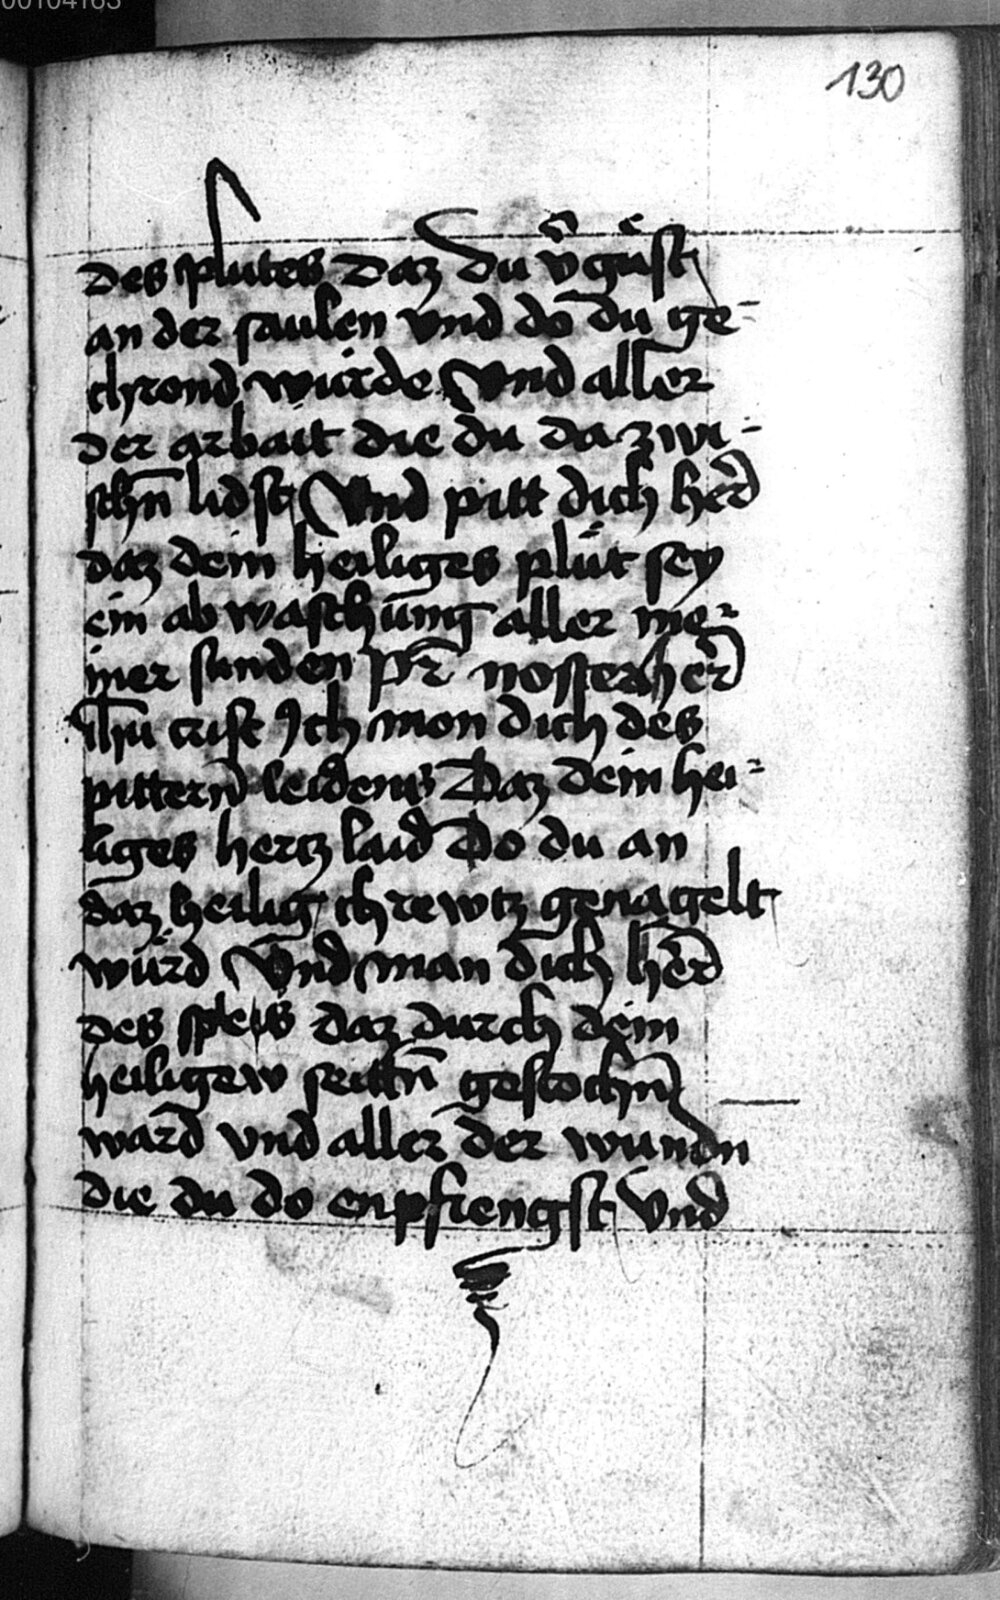 00104163
130
des plutes daz du v̄gust
an der saulen vnd do du ge-
chrond wurde Vnd aller
der arbait die du da zwi-
schn̄ lidst Vnd pitt dich her̄
daz dein heiliges plut sey
ein ab waschung aller me-
iner sunden pr̄ noster her̄
Ihū crist Ich mon dich des
pittern̄ leidens Daz dein hei-
liges hertz laid Do du an
daz heilig chrewtz genagelt
wurd Vnd man dich her̄
des spers daz durch dein
heiligew seittn̄ gestochn̄
ward vnd aller der wundn
die du do enpfiengst Vnd